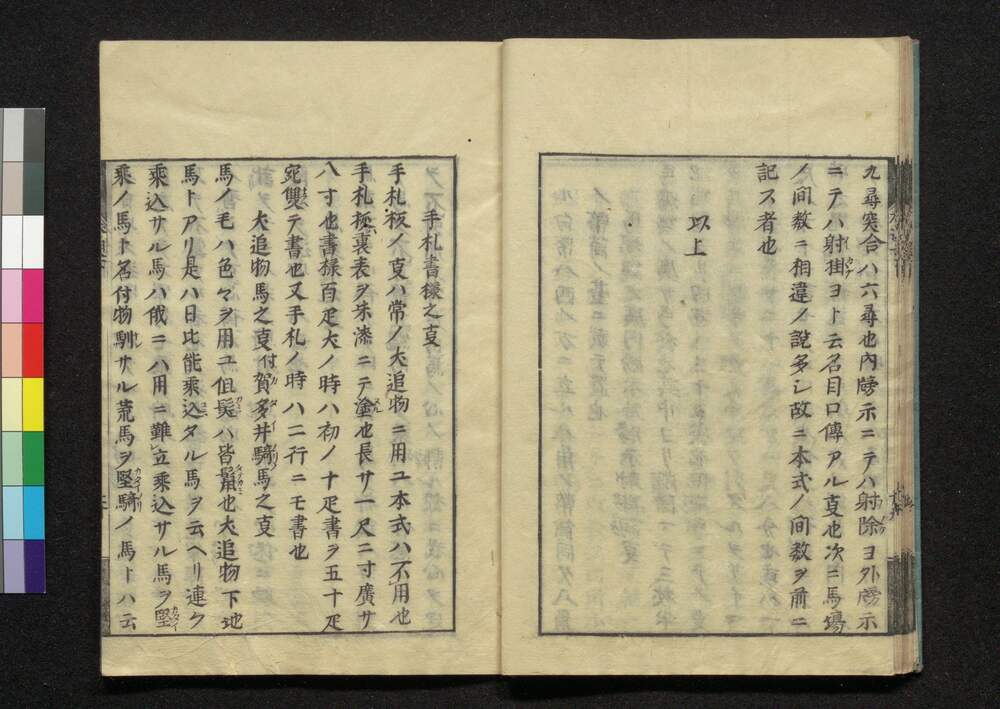 九尋突合ハ六尋也内牓示ニテハ射除ヨ外牓示
ニテハ射掛ヨト云名目口傳アル㕝也次ニ馬場
ノ間数ニ相違ノ說多シ故ニ本式ノ間数ヲ前ニ
記ス者也
以上
手札書様之㕝
手札板ノ㕝ハ常ノ犬追物ニ用ユ本式ハ不用也
手札板裏表ヲ朱漆ニテ塗也長サ一尺二寸廣サ
八寸也書様百疋犬ノ時ハ初ノ十疋書ヲ五十疋
宛雙テ書也又手札ノ時ハ二行ニモ書也
犬追物馬之㕝付賀多井騎馬之㕝
馬ノ毛ハ色々ヲ用ユ但髪ハ皆鬣也犬追物下地
馬トアリ是ハ日比能乘込タル馬ヲ云ヘリ連ク
乘込サル馬ハ俄ニハ用ニ難立乘込サル馬ヲ堅
乘ノ馬ト名付物馴サル荒馬ヲ堅騎ノ馬トハ云